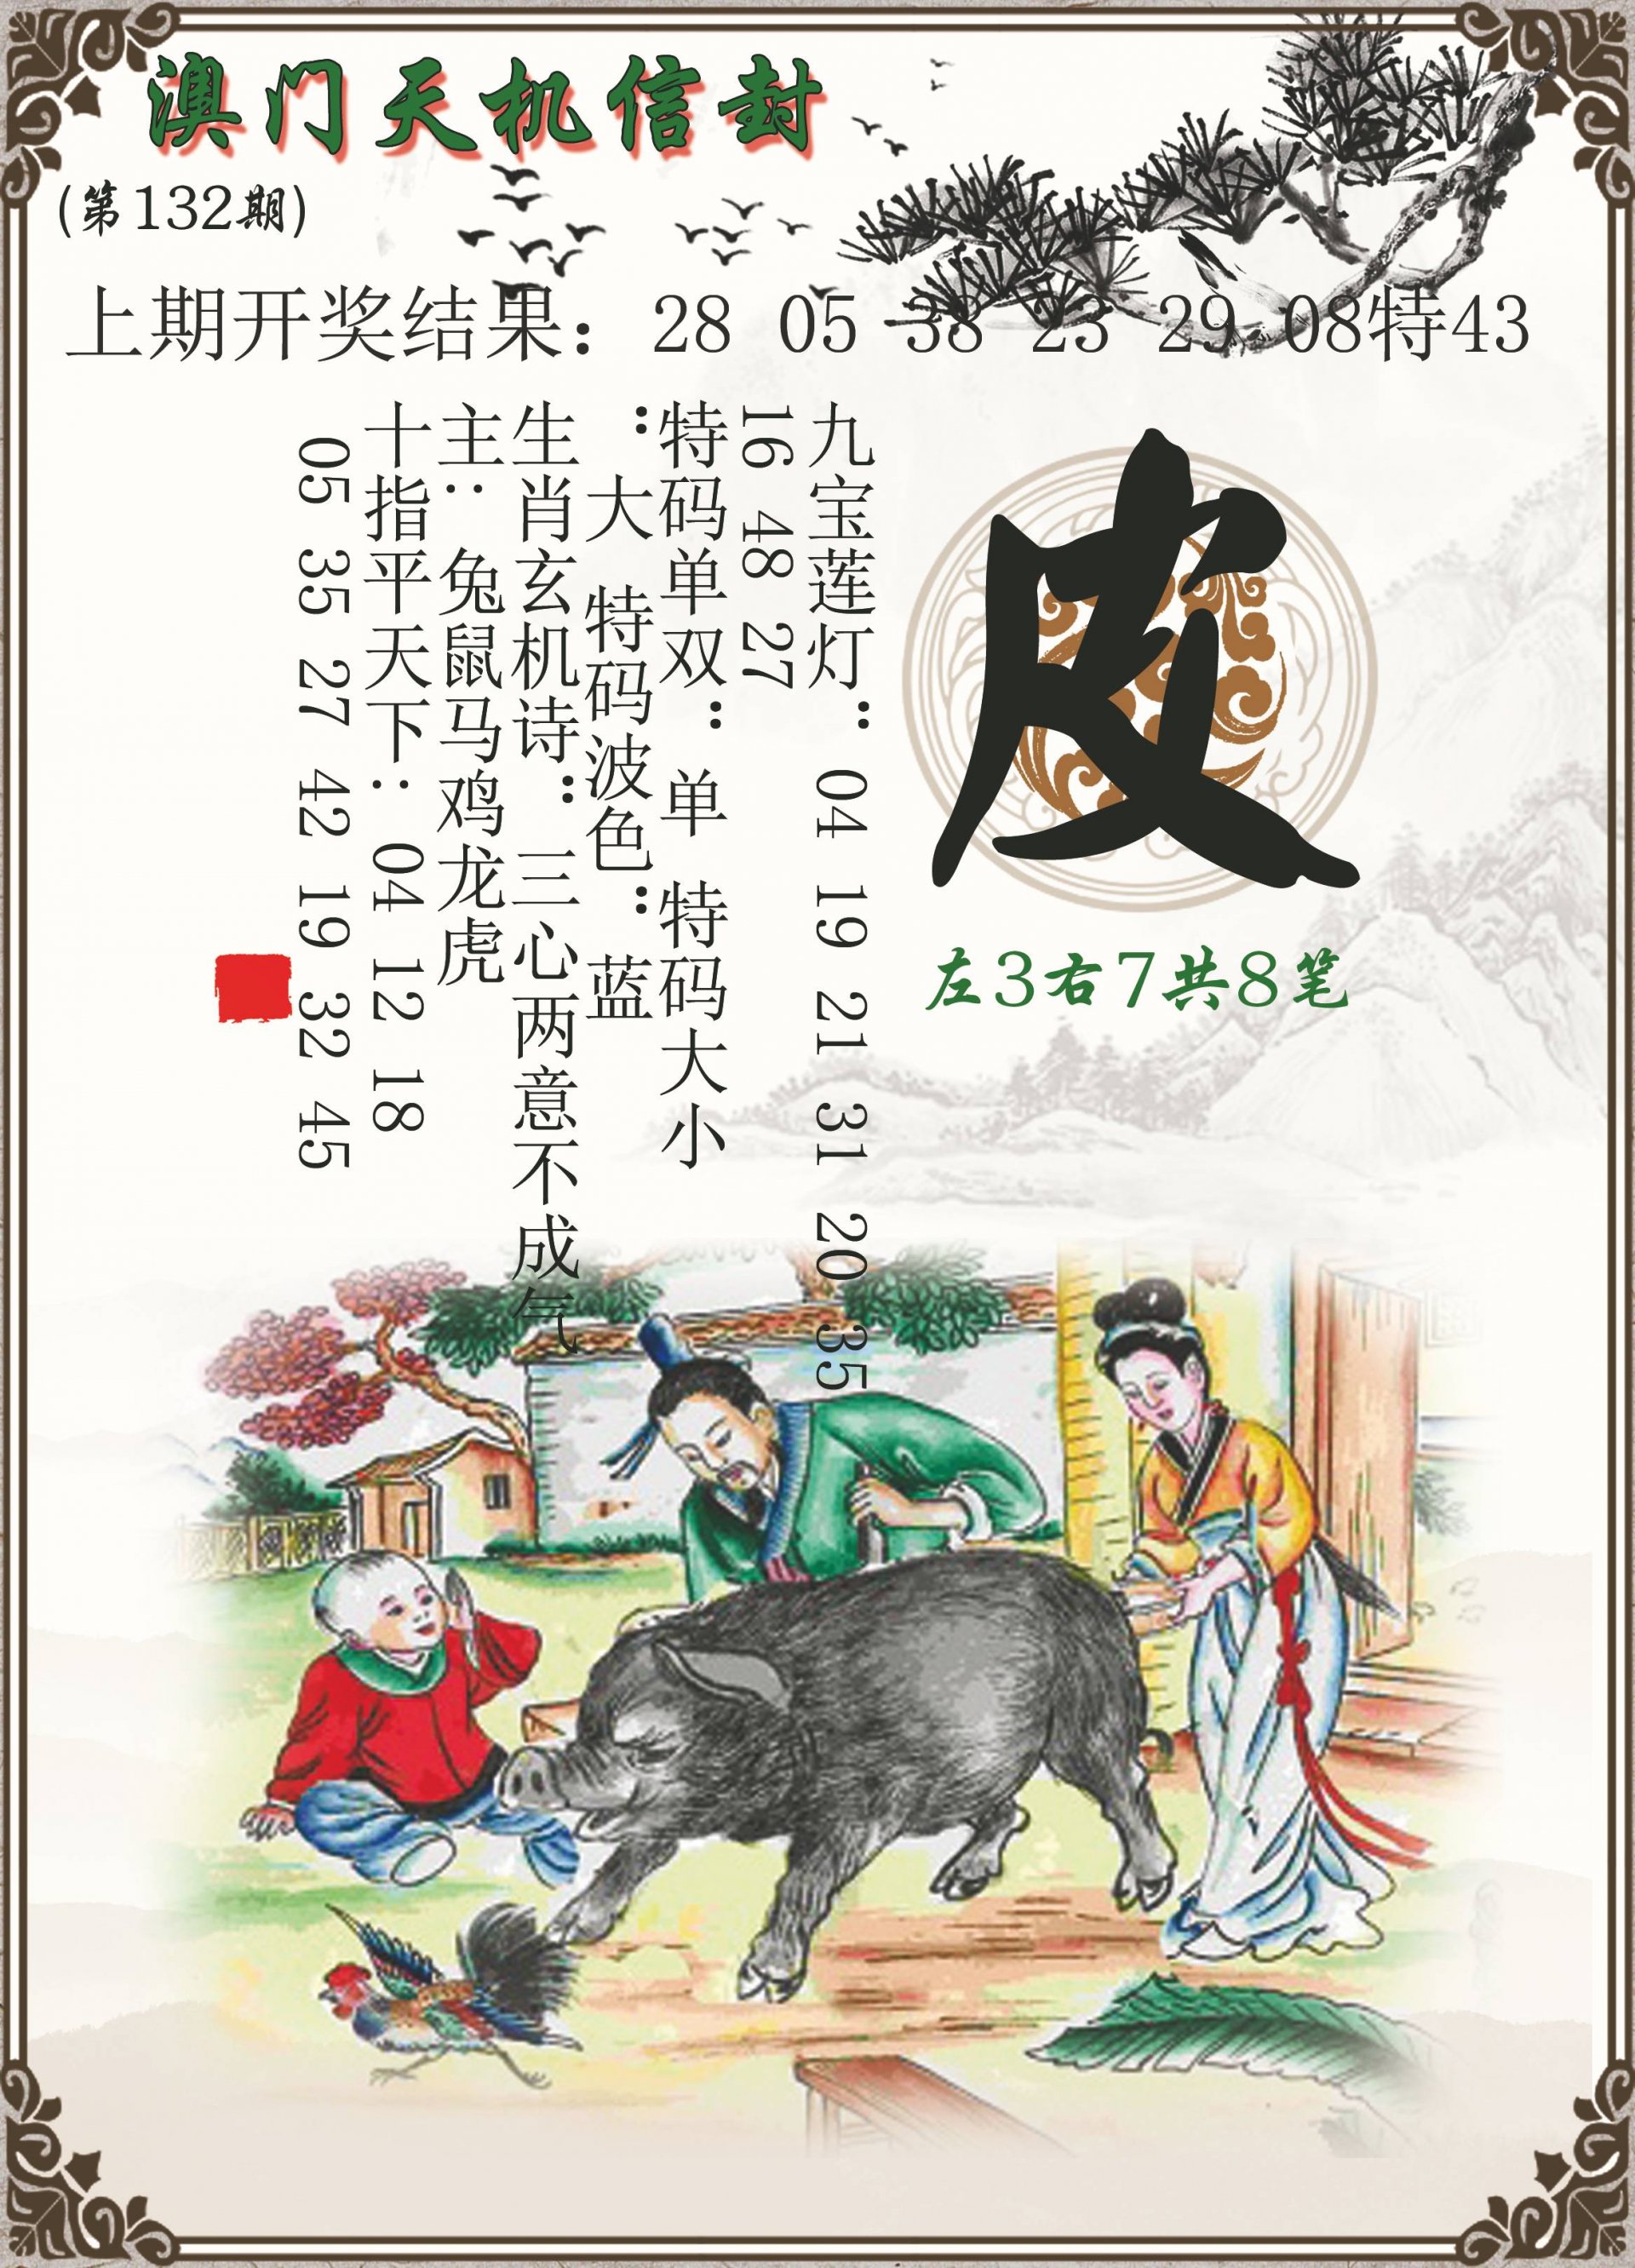 澳门天机信封
(第132期)
上期开奖结果：28 05 38 23 29 08特43
皮
左3右7共8笔
九宝莲灯：04 19 21 31 20 35
16 48 27
特码单双：单 特码大小
：大 特码波色：蓝
生肖玄机诗：三心两意不成气
主：兔鼠马鸡龙虎
十指平天下：04 12 18
05 35 27 42 19 32 45